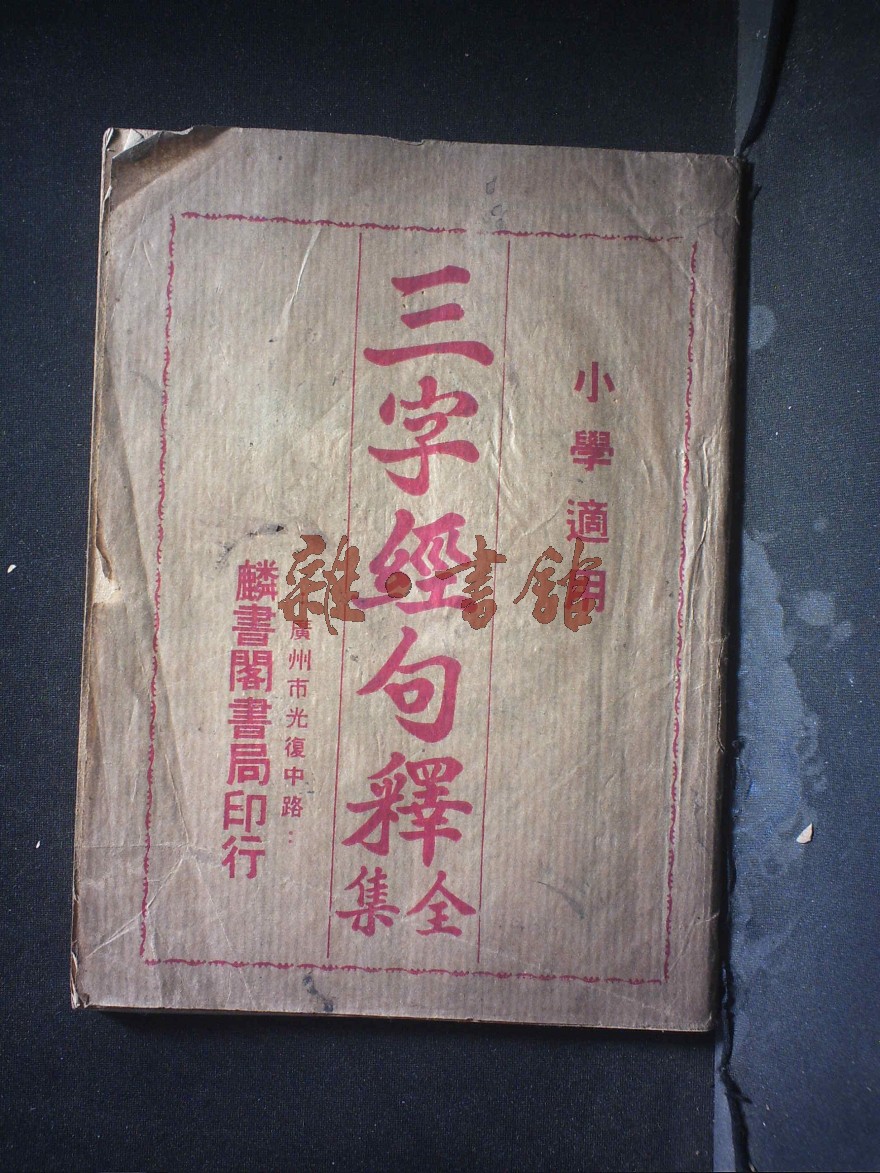 小學適用
三字經句釋全集
廣州市光復中路：
麟書閣書局印行
雜·書館